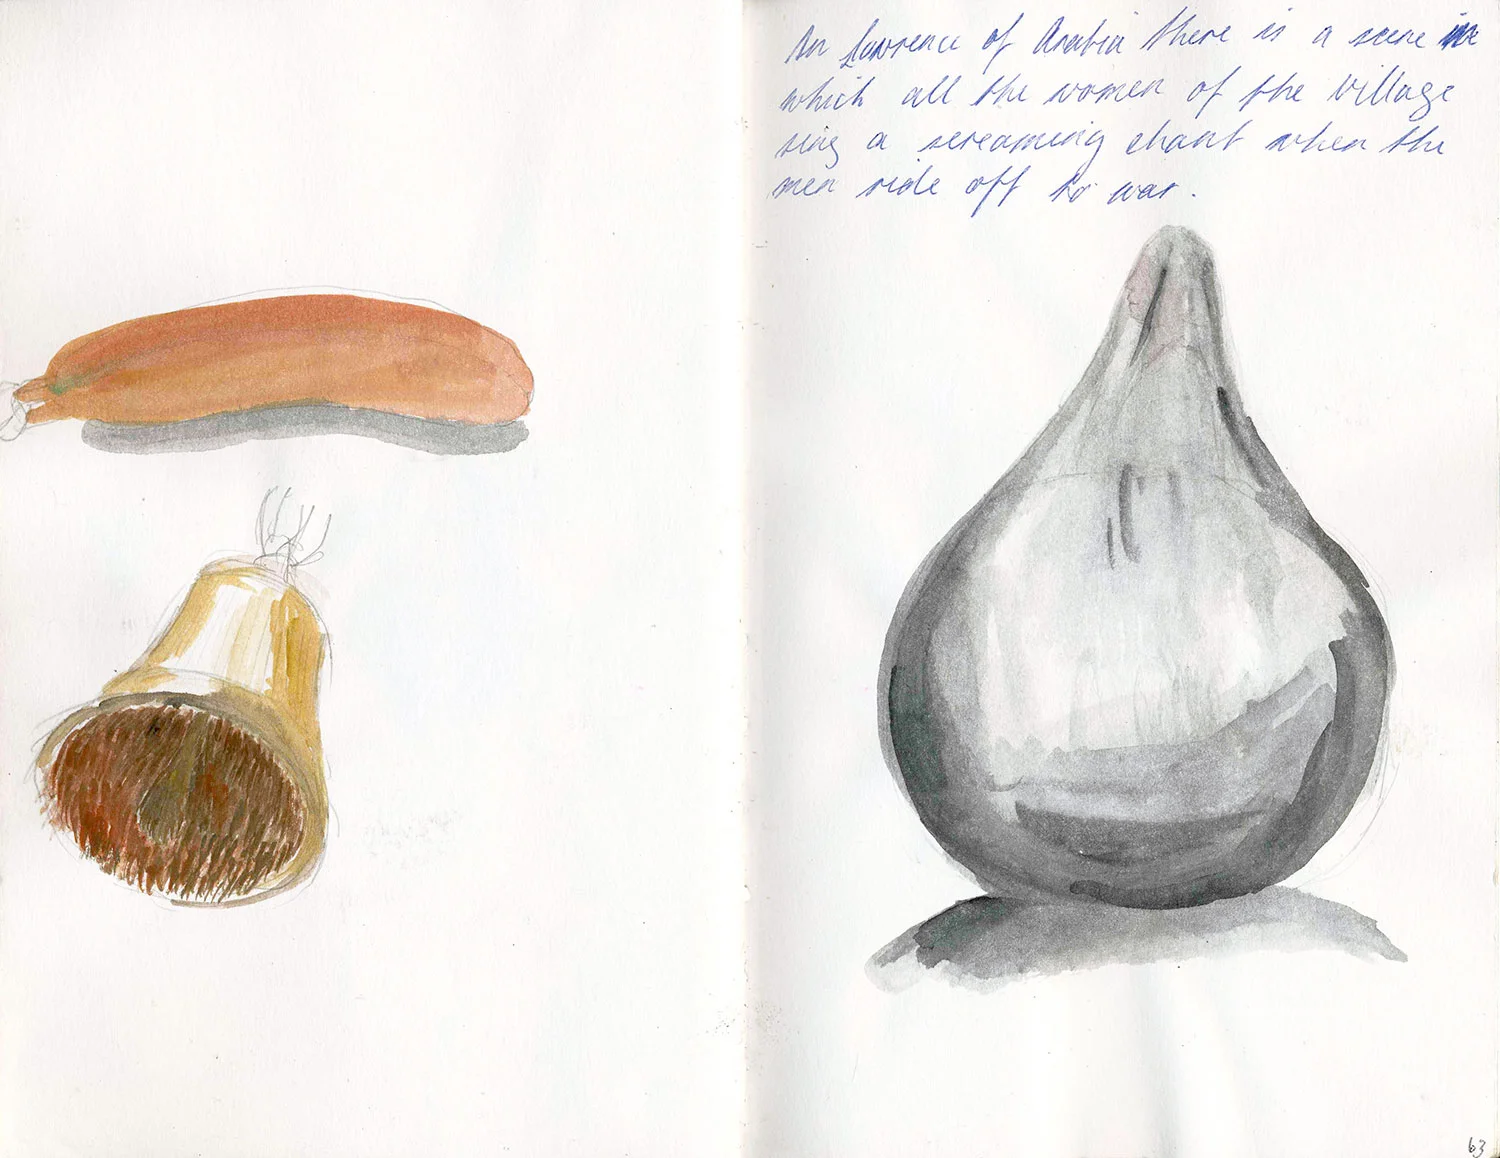 In Lawrence of Arabia there is a scene in
which all the women of the village
sing a screaming chant when the
men ride off to war.
63